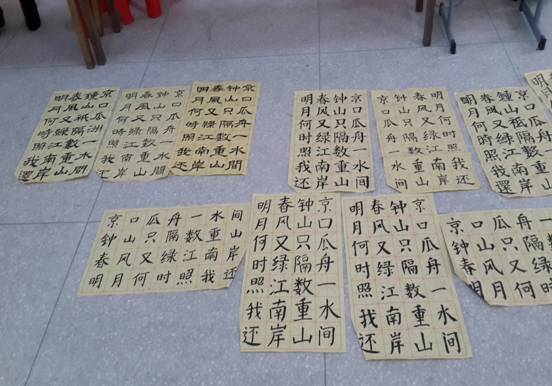 京口瓜洲一水間
鍾山祇隔數重山
春風又綠江南岸
明月何時照我還
京口瓜舟一水間
钟山只隔數重山
春風又綠江南岸
明月何時照我还
京口瓜舟一水間
钟山只隔數重山
春風又綠江南岸
明月何時照我还
京口瓜舟一水间
钟山只隔数重山
春风又绿江南岸
明月何时照我还
京口瓜舟一水间
钟山只隔数重山
春风又绿江南岸
明月何时照我还
鍾山祇隔數重山
春風又綠江南岸
明月何時照我還
京口瓜舟一水间
钟山只隔数重山
春风又绿江南岸
明月何时照我还
京口瓜舟一水间
钟山只隔数重山
春风又绿江南岸
明月何时照我还
京口瓜舟一水间
钟山只隔数重山
春风又绿江南岸
明月何时照我还
京口瓜舟一
钟山只隔数
春风又绿
明月何时